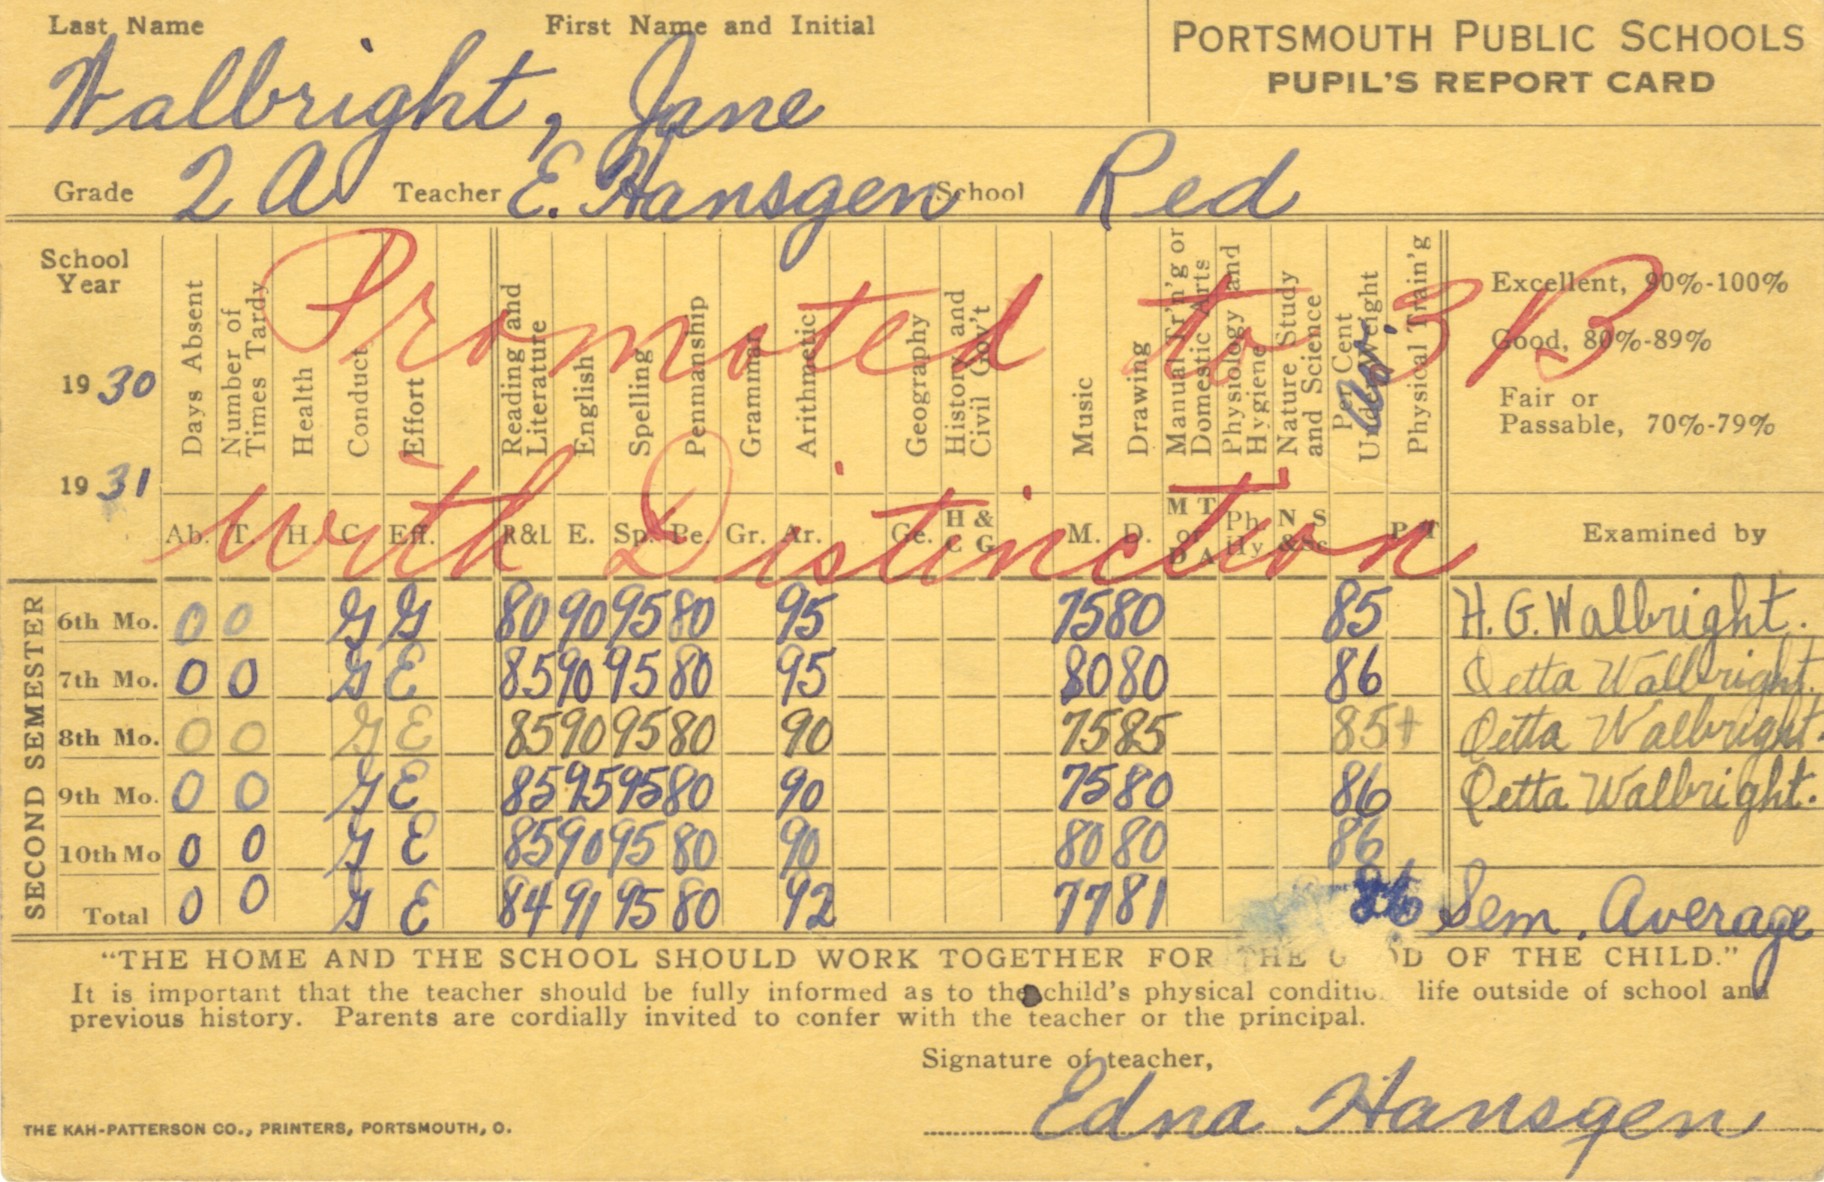 Last Name First Name and Initial
Walbright, Jane
PORTSMOUTH PUBLIC SCHOOLS
PUPIL'S REPORT CARD
Grade 2 A Teacher E. Hansgen School Red
School Year
19 30
19 31
Days Absent
Number of Times Tardy
Health
Conduct
Effort
Reading and Literature
English
Spelling
Penmanship
Grammar
Arithmetic
Geography
History and Civil Gov't
Music
Drawing
Manual Tr'n'g or Domestic Arts
Physiology and Hygiene
Nature Study and Science
Per Cent Underweight
Physical Train'g
Promoted to 3B
with Distinction
Excellent, 90%-100%
Good, 80%-89%
Fair or
Passable, 70%-79%
Ab. T. H. C. Eff. R&L E. Sp. Pe. Gr. Ar. Ge. H & C G M. D. M T or D A Ph. Hy N S & Sc P T Examined by
SECOND SEMESTER
6th Mo. 0 0 G G 80 90 95 80 95 75 80 85 H. G. Walbright.
7th Mo. 0 0 G E 85 90 95 80 95 80 80 86 Oetta Walbright.
8th Mo. 0 0 G E 85 90 95 80 90 75 85 85+ Oetta Walbright.
9th Mo. 0 0 G E 85 95 95 80 90 75 80 86 Oetta Walbright.
10th Mo 0 0 G E 85 90 95 80 90 80 80 86
Total 0 0 G E 84 91 95 80 92 77 81 86 Sem. Average
"THE HOME AND THE SCHOOL SHOULD WORK TOGETHER FOR THE G OD OF THE CHILD."
It is important that the teacher should be fully informed as to the child's physical conditio life outside of school and
previous history. Parents are cordially invited to confer with the teacher or the principal.
Signature of teacher,
Edna Hansgen
THE KAH-PATTERSON CO., PRINTERS, PORTSMOUTH, O.